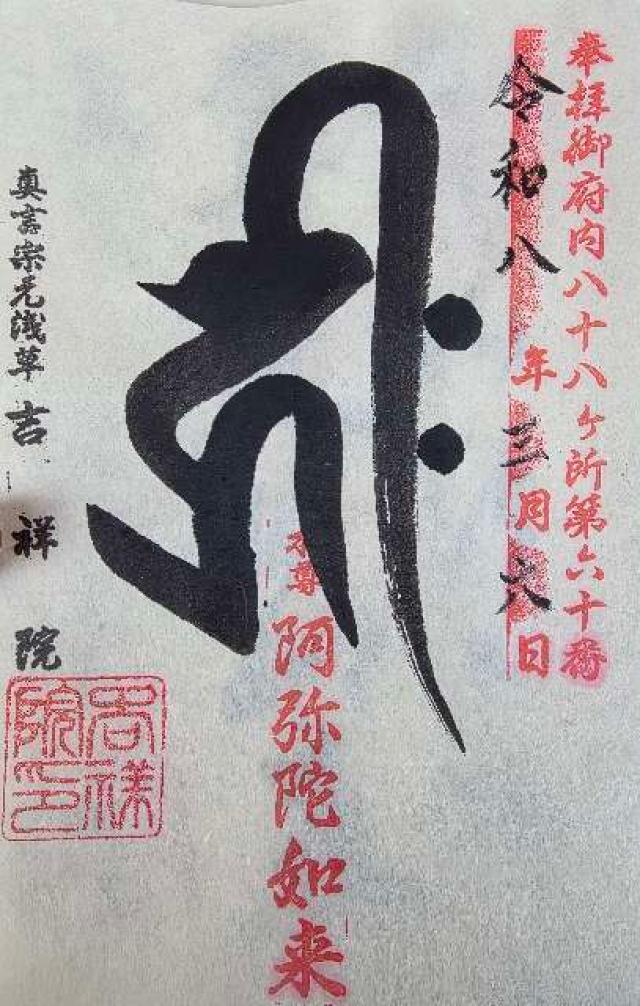 奉拝御府内八十八ヶ所第六十番
令和八年三月六日
𑖮𑖿𑖨𑖱𑖾
本尊 阿弥陀如来
真言宗元浅草 吉祥院
吉祥院印